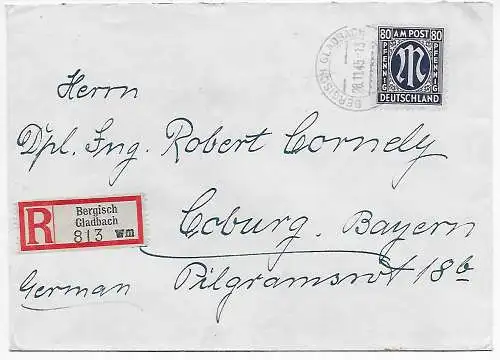 80 AM POST 80
PFENNIG M PFENNIG
DEUTSCHLAND
BERGISCH GLADBACH
18.11.45-13
Herrn
Dpl. Ing. Robert Cornely
R Bergisch
Gladbach
813 wm
Coburg. Bayern
German Pilgramsrot 18b